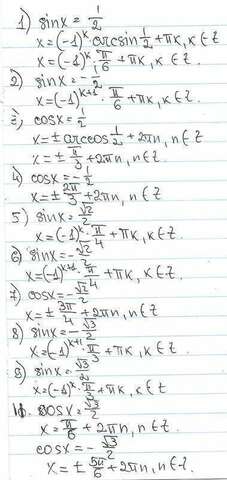 1) sinx = 1/2
x=(-1)^k arcsin 1/2 + πk, k∈Z
x=(-1)^k · π/6 + πk, k∈Z.
2) sinx = -1/2
x=(-1)^{k+1} · π/6 + πk, k∈Z.
3) cosx = 1/2
x = ± arccos 1/2 + 2πn, n∈Z
x = ± π/3 + 2πn, n∈Z.
4) cosx = -1/2
x = ± 2π/3 + 2πn, n∈Z
5) sinx = √2/2
x=(-1)^k · π/4 + πk, k∈Z.
6) sinx = -√2/2
x=(-1)^{k+1} · π/4 + πk, k∈Z.
7) cosx = -√2/2
x = ± 3π/4 + 2πn, n∈Z
8) sinx = -√3/2
x=(-1)^{k+1} π/3 + πk, k∈Z.
9) sinx = √3/2
x=(-1)^k · π/3 + πk, k∈Z
cosx = √3/2
x = π/6 + 2πn, n∈Z.
cosx = -√3/2
x = ± 5π/6 + 2πn, n∈Z.